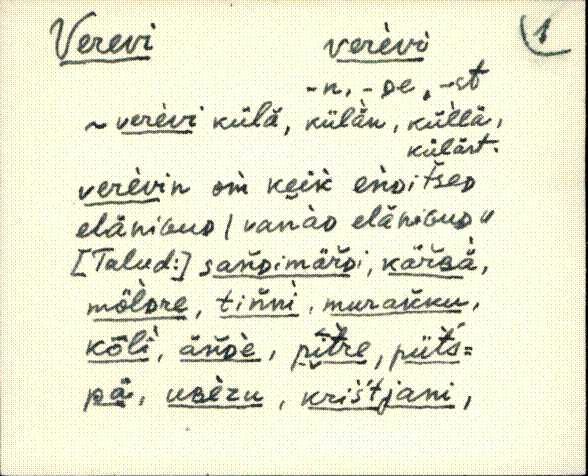 Verevi verèvi 1
-n, -de, -st
~ verèvi külä, külän, küllä,
külast.
verèvin om keik endìtseD
eläniGuD / vanàD eläniGuD"
[Talud:] sandimärdi, kärBä,
möldre, tinnì, murakku,
kõlì, ändè, pìtre, püts=
pä, uBèzu, kristjani,